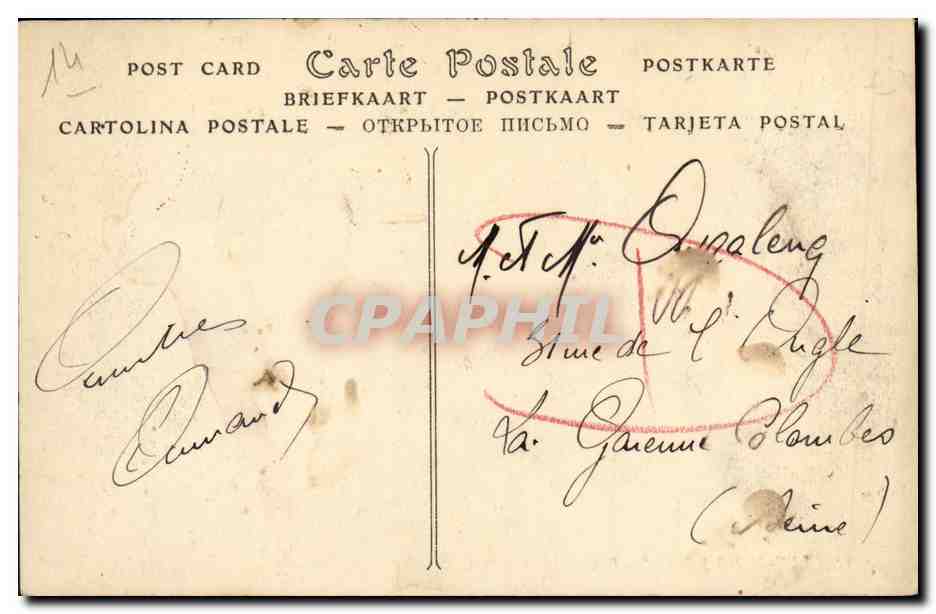 14
POST CARD Carte Postale POSTKARTE
BRIEFKAART — POSTKAART
CARTOLINA POSTALE — ОТКРЫТОЕ ПИСЬМО — TARJETA POSTAL
Armand
M. et Mme
rue de l'Angle
La Garenne Colombes
(Seine)
CPAPHIL